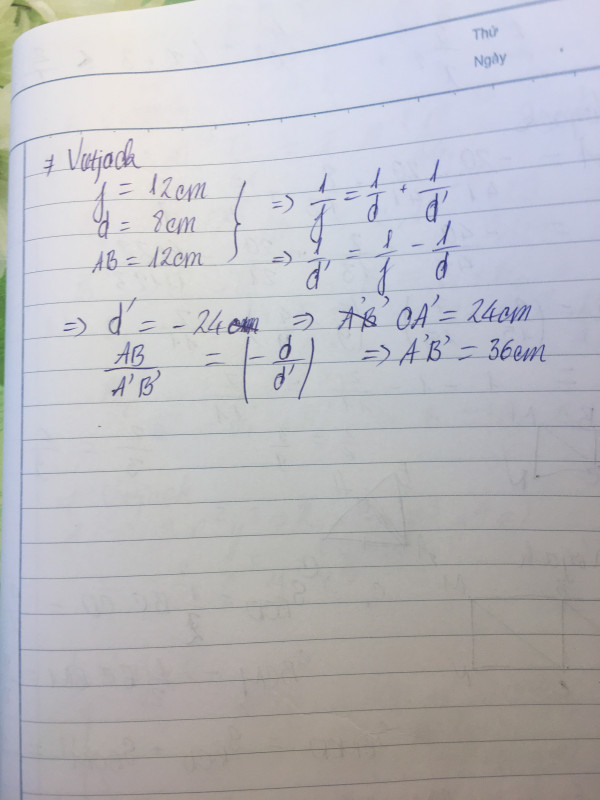 Thứ
Ngày
f = 12cm
d = 8cm
AB = 12cm
} => 1/f = 1/d + 1/d'
=> 1/d' = 1/f - 1/d
=> d' = - 24cm => A'B' OA' = 24cm
AB/A'B' = |- d/d'| => A'B' = 36cm